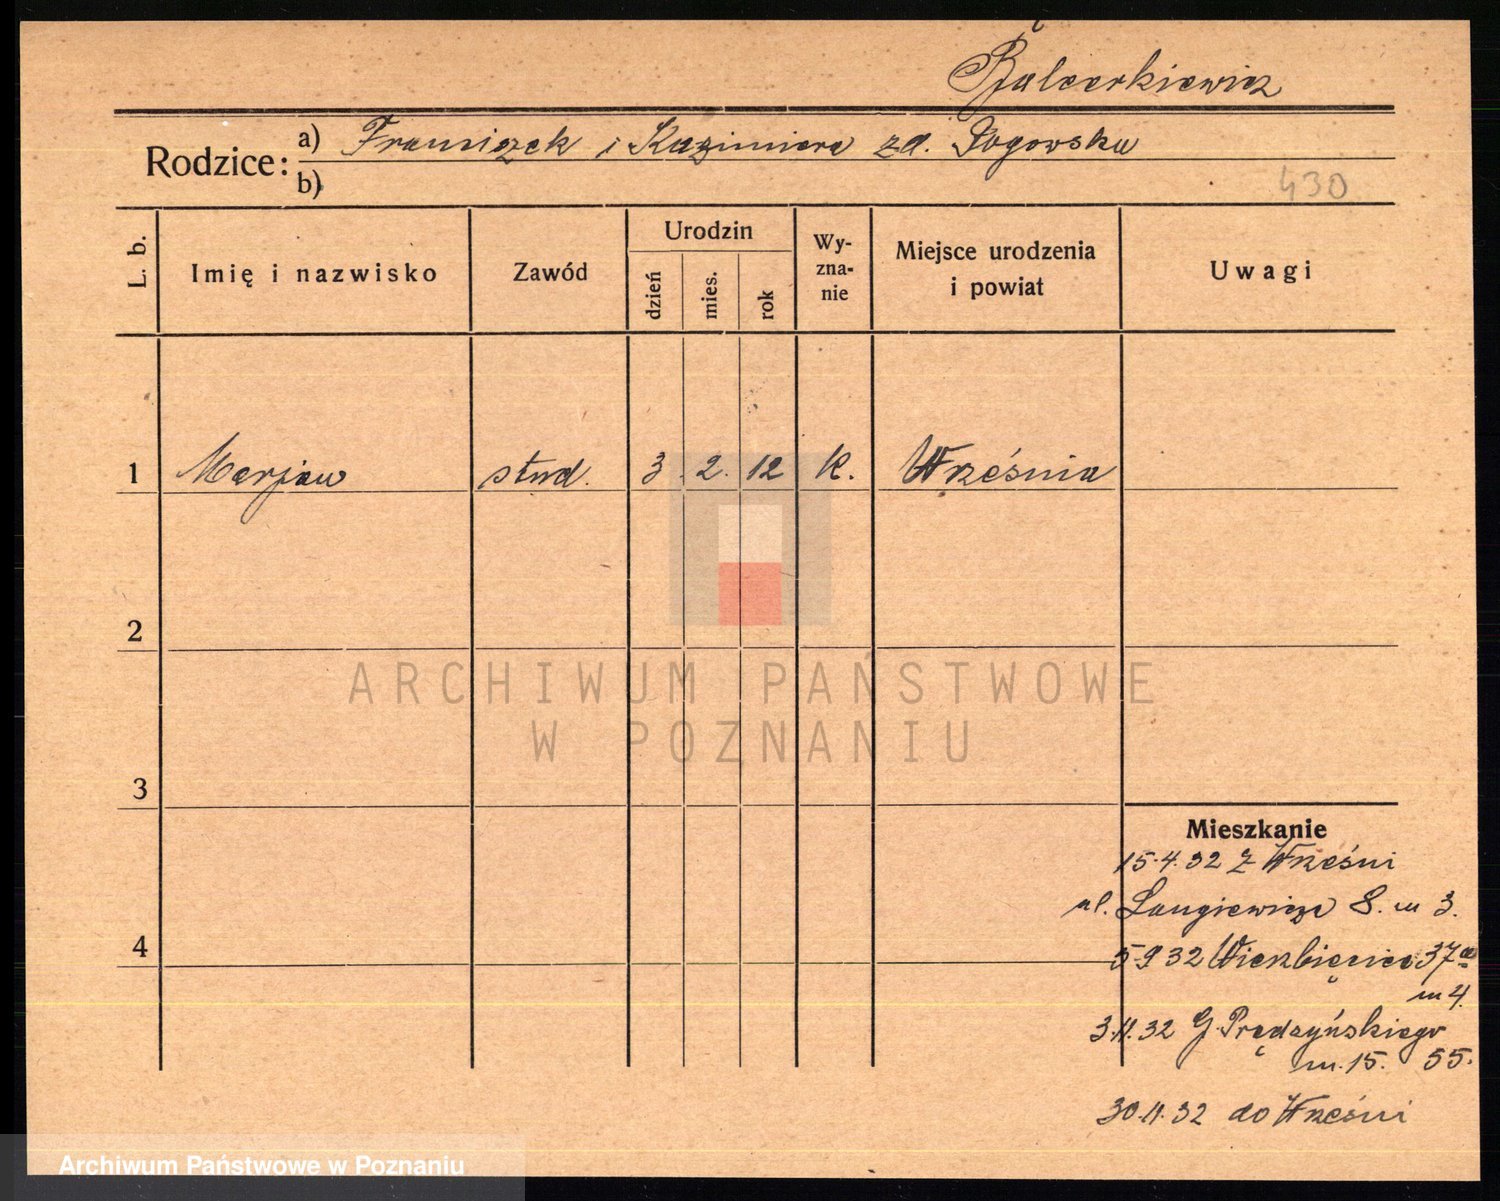 Balcerkiewicz
Rodzice: a) Franciszek i Kazimiera zd. Rogowska
b)
430
L. b.
Imię i nazwisko
Zawód
Urodzin
dzień
mies.
rok
Wy-
zna-
nie
Miejsce urodzenia
i powiat
Uwagi
1 Marjan stud. 3 2. 12 k. Września
2
3
4
Mieszkanie
15.4.32 z Wrześni
ul. Langiewicza 8. m 3.
5.9 32 Wierzbięcice 37a
m 4.
3.11.32 G. Prądzyńskiego
m. 15. 55.
30.11.32 do Wrześni
ARCHIWUM PAŃSTWOWE
W POZNANIU
Archiwum Państwowe w Poznaniu